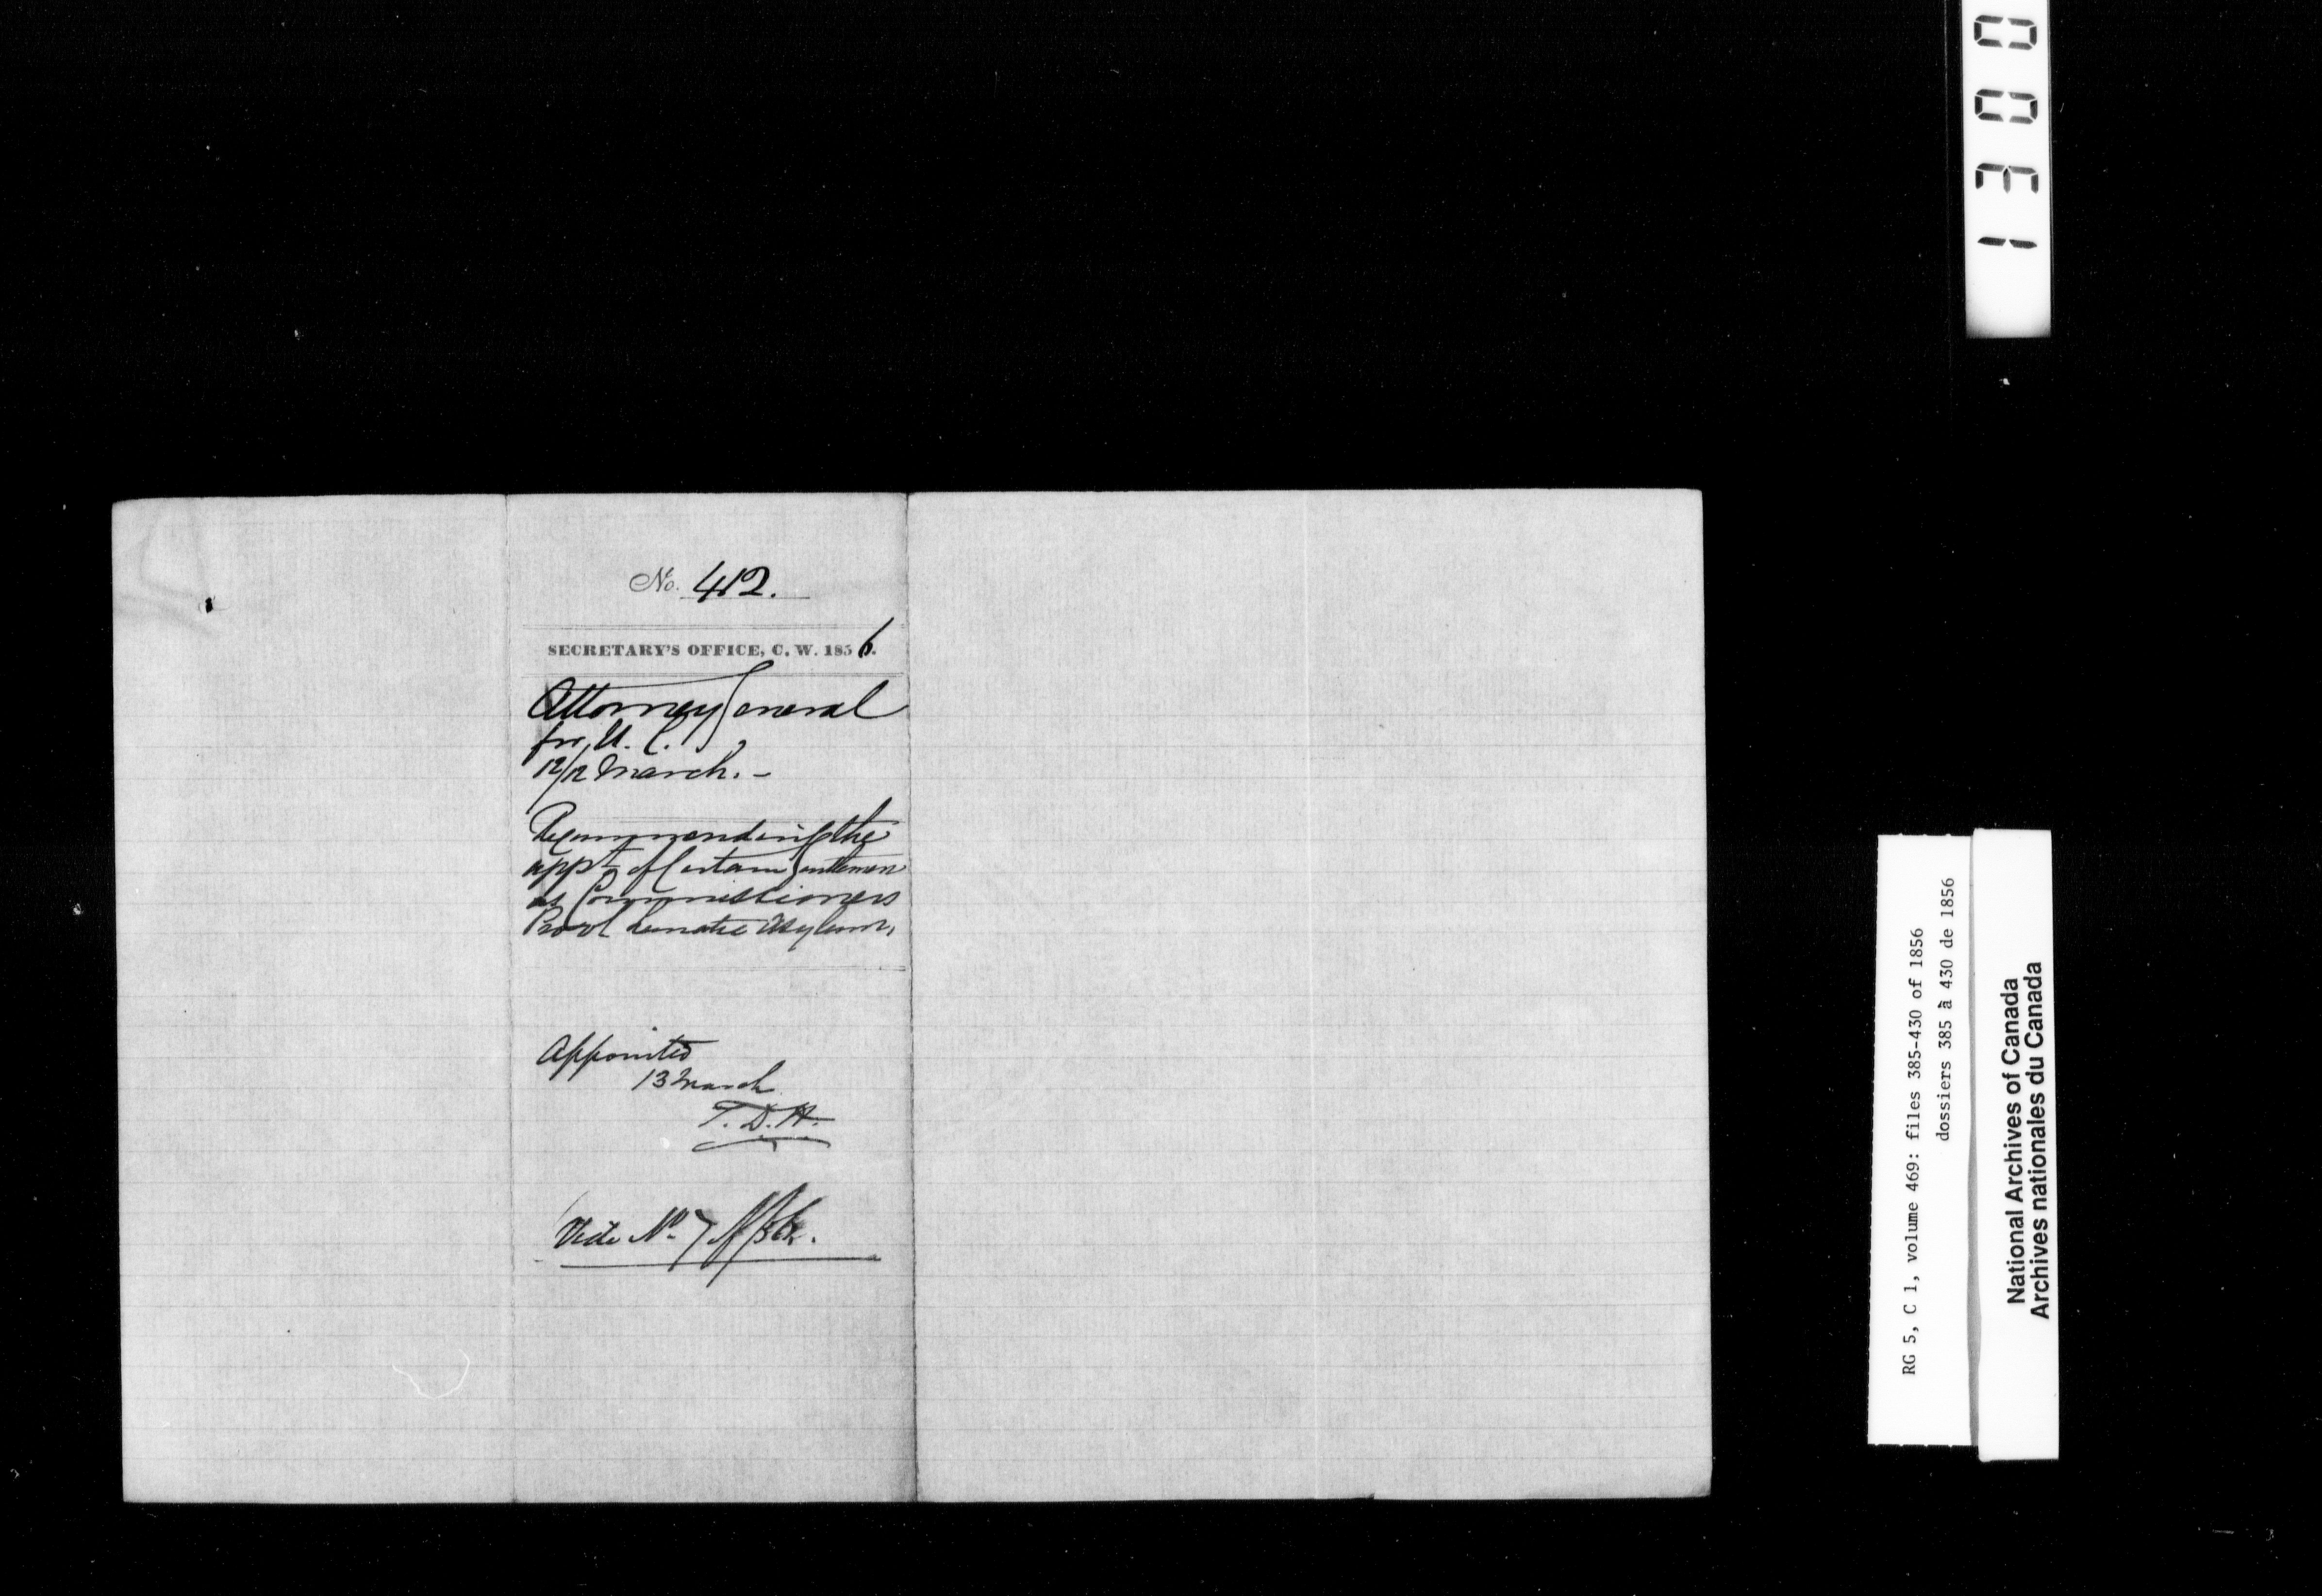 No. 412.
SECRETARY'S OFFICE, C. W. 1856.
Attorney General
for U. C.
12/12 March. –
Recommending the
appt of Certain Gentlemen
as Commissioners
Provl Lunatic Asylum,
Appointed
13 March
T. D. H.
Vide No 7 of
1300
RG 5, C 1, volume 469: files 385-430 of 1856
dossiers 385 à 430 de 1856
National Archives of Canada
Archives nationales du Canada